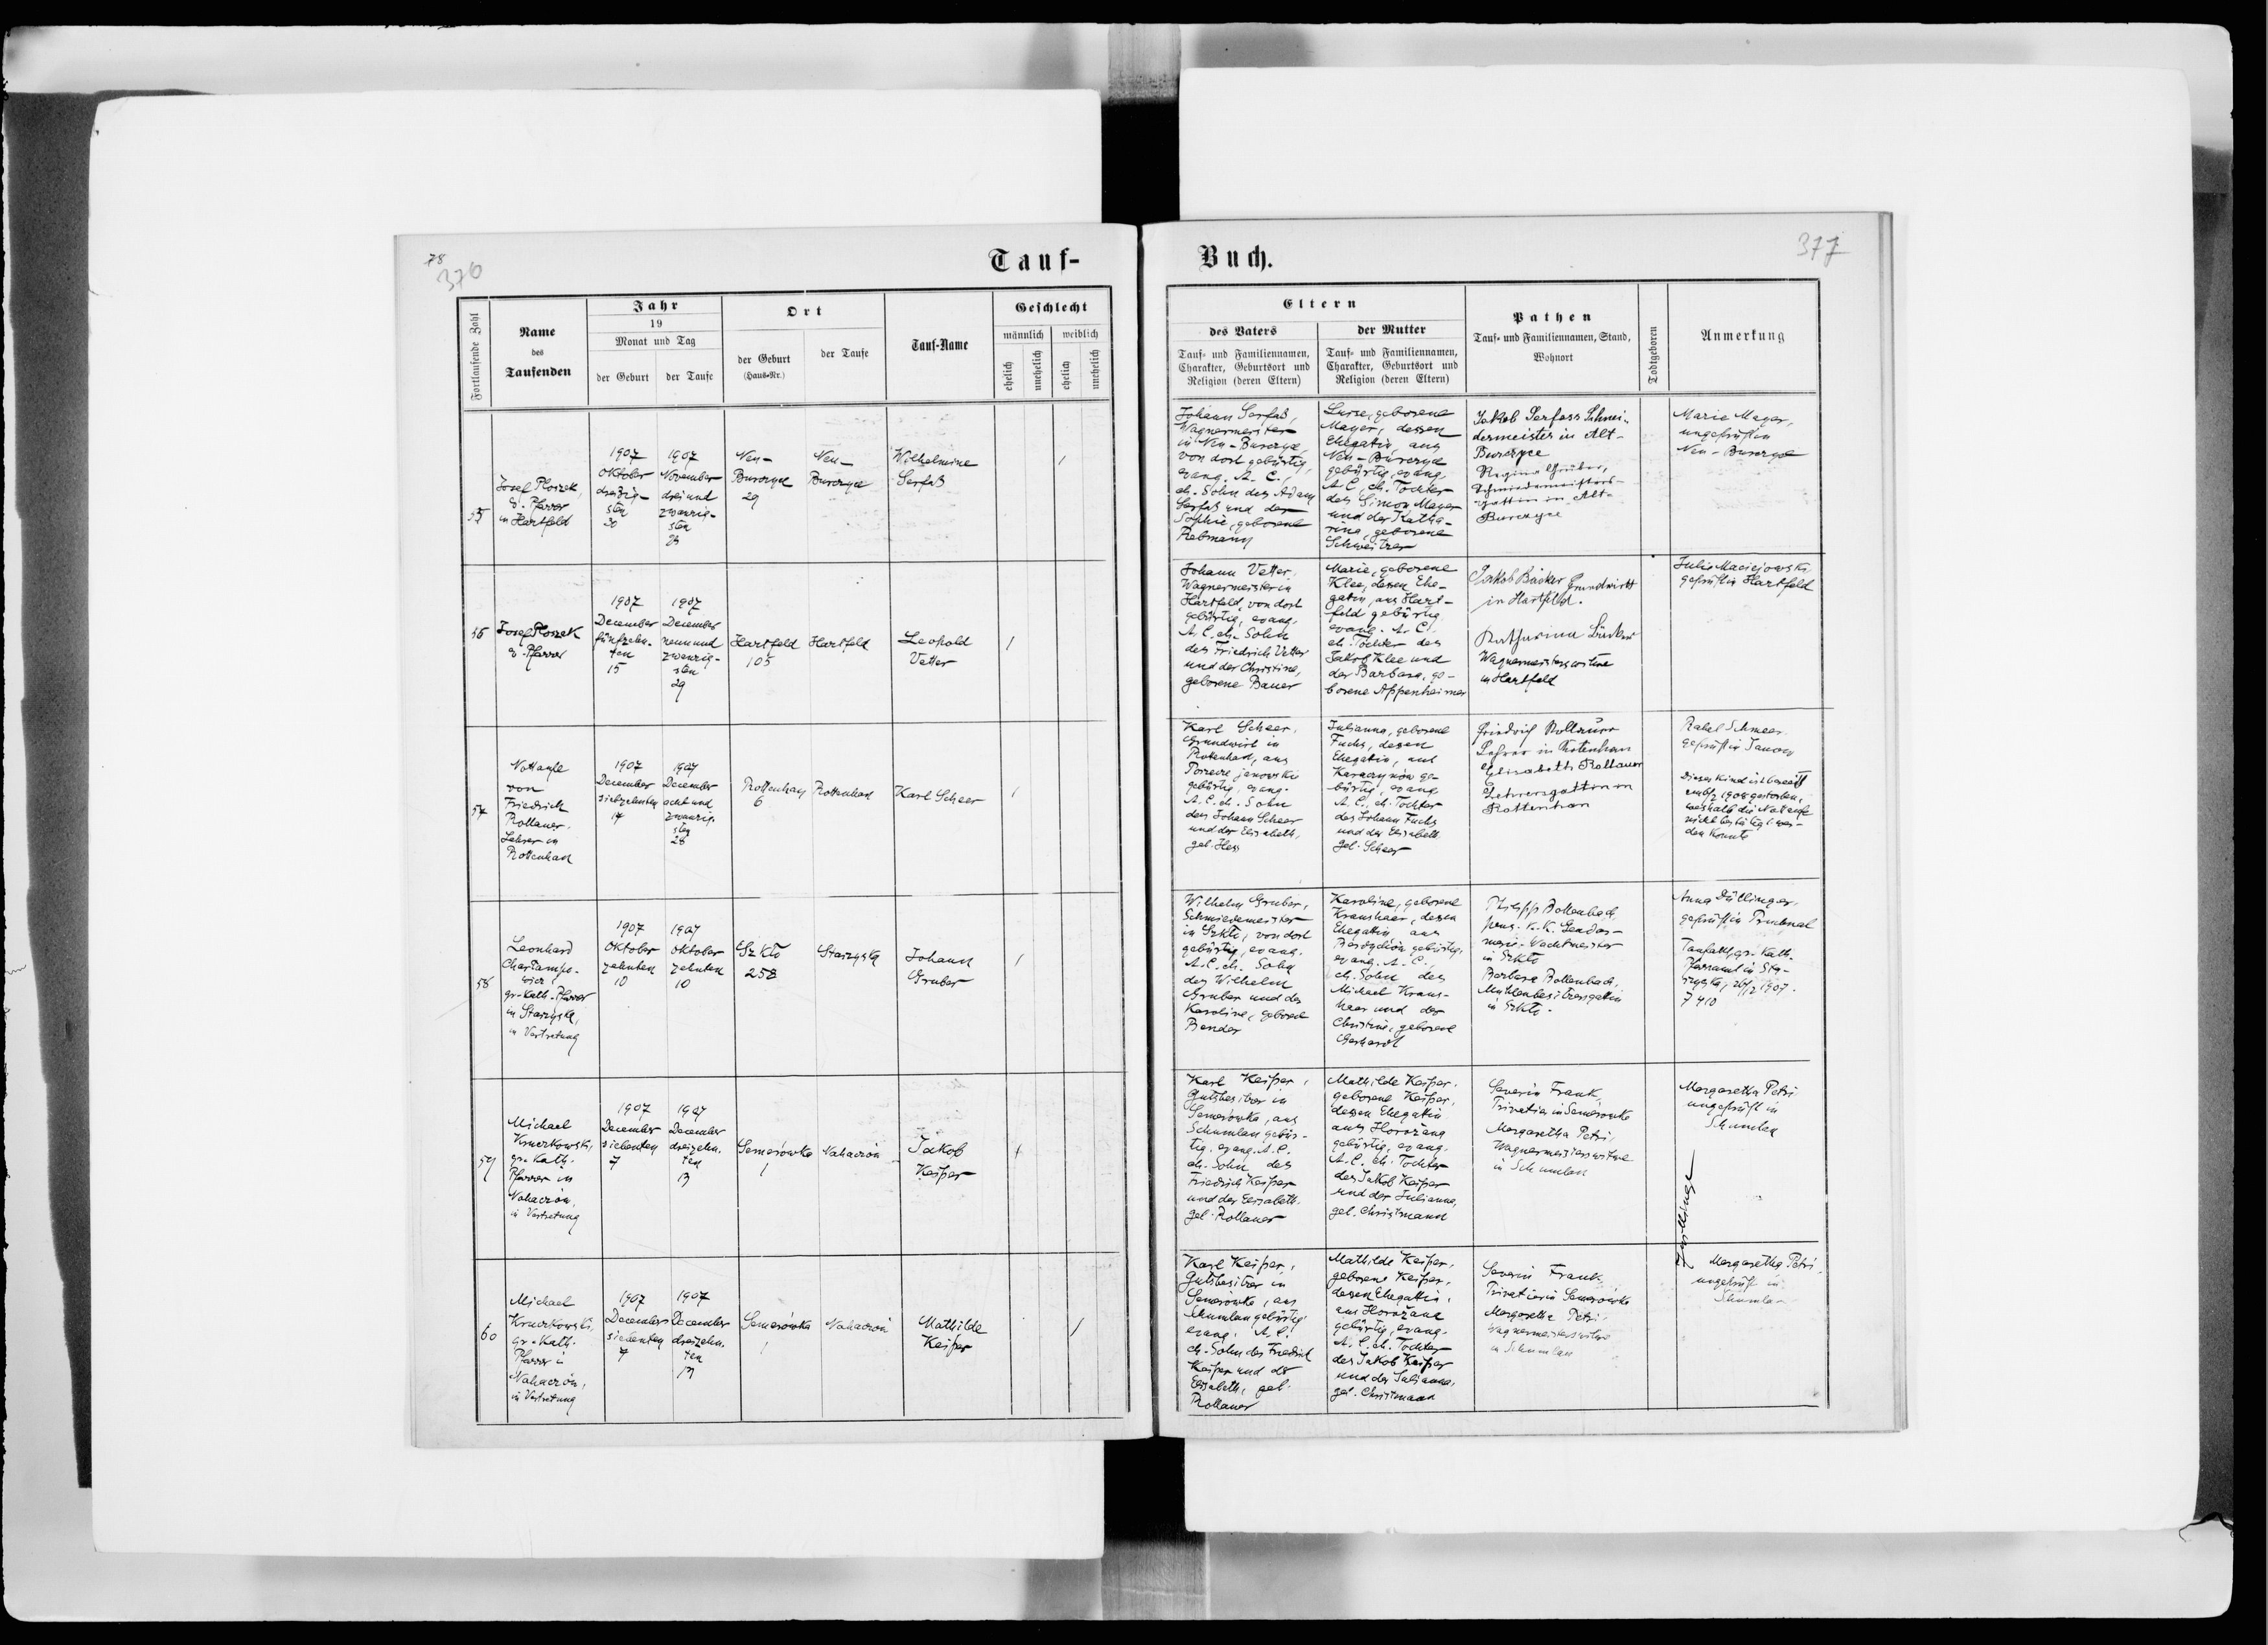 78
376
377
Tauf-
Buch.
Fortlaufende Zahl
Name
des
Taufenden
Jahr
19
Monat und Tag
der Geburt
der Taufe
Ort
der Geburt
(Haus-Nr.)
der Taufe
Tauf-Name
Geschlecht
männlich
weiblich
ehelich
unehelich
ehelich
unehelich
Eltern
des Vaters
Tauf- und Familiennamen,
Charakter, Geburtsort und
Religion (deren Eltern)
der Mutter
Tauf- und Familiennamen,
Charakter, Geburtsort und
Religion (deren Eltern)
Pathen
Tauf- und Familiennamen, Stand,
Wohnort
Todtgeboren
Anmerkung
55
Josef Ploszek,
ev. Pfarrer
in Hartfeld
1907
Oktober
dreißig-
sten
30
1907
November
drei und
zwanzig-
sten
23
Neu-
Burczyce
29
Neu-
Burczyce
Wilhelmine
Serfaß
/
Johann Serfaß,
Wagnermeister
in Neu-Burczyce,
von dort gebürtig,
evang. A. C.,
eh. Sohn des Adam
Serfaß und der
Sophie, geborene
Rebmann
Luise, geborene
Mayer, dessen
Ehegatin, aus
Neu-Burczyce
gebürtig, evang.
A. C., eh. Tochter
des Simon Mayer
und der Katha-
rina, geborene
Schweitzer
Jakob Serfass Schnei-
dermeister in Alt-
Burczyce
Regina Gruber,
Schmiedemeisters-
gattin in Alt-
Burczyce
Marie Mayer,
ungeprüft in
Neu-Burczyce
56
Josef Ploszek
ev. Pfarrer
1907
December
fünfzehn-
ten
15
1907
December
neun und
zwanzig-
sten
29
Hartfeld
105
Hartfeld
Leopold
Vetter
/
Johann Vetter,
Wagnermeister in
Hartfeld, von dort
gebürtig, evang.
A. C. eh. Sohn
des Friedrich Vetter
und der Christine,
geborene Bauer
Marie, geborene
Klee, dessen Ehe-
gatin, aus Hart-
feld gebürtig,
evang. A. C.
eh. Tochter des
Jakob Klee und
der Barbara, ge-
borene Appenheimer
Jakob Bäcker Grundwirth
in Hartfeld.
Katharina Bäcker
Wagnermeisterswitwe
in Hartfeld
Julie Maciejowska
geprüft in Hartfeld
57
Nottaufe
von
Friedrich
Rollauer,
Lehrer in
Rottenhan
1907
December
siebzehnten
17
1907
December
acht und
zwanzig-
sten
28
Rottenhan
6
Rottenhan
Karl Scheer
/
Karl Scheer,
Grundwirt in
Rottenhan, aus
janowskie
gebürtig, evang.
A. C. eh. Sohn
des Johann Scheer
und der Elisabeth,
geb. Hess
Julianna, geborene
Fuchs, dessen
Ehegatin, aus
Karaczynów ge-
bürtig, evang.
A. C., eh. Tochter
des Johann Fuchs
und der Elisabeth
geb. Scheer
Friedrich Rollauer
Lehrer in Rotenhan
Elisabeth Rollauer
Lehrersgattin in
Rottenhan
Rahel Schmeer
geprüft in Janow
Dieses Kind ist bereits
am 1908 gestorben,
weshalb die Nottaufe
nicht bestätigt wer-
den konnte
58
Leonhard
gr.-kath. Pfarrer
in Starzyska,
in Vertretung
1907
Oktober
zehnten
10
1907
Oktober
zehnten
10
Szkło
258
Starzyska
Johann
Gruber
/
Wilhelm Gruber,
Schmiedemeister
in Szkło, von dort
gebürtig, evang.
A. C. eh. Sohn
des Wilhelm
Gruber und der
Karoline, geborene
Bender
Karoline, geborene
Kraushaar, dessen
Ehegattin aus
gebürtig,
evang. A. C.,
eh. Sohn des
Michael Kraus-
haar und der
Christine, geborene
Gerhardt
Philipp Rollenbach,
pens. k. k. Gendar-
merie-Wachtmeister
in Szkło
Barbara Rollenbach,
Mühlenbesitzersgattin
in Szkło.
Anna Düllinger,
geprüft in
gr. kath.
Pfarramt in Sta-
rzyska, 26/12 1907.
7 410
59
Michael
Krwczkowski,
gr.-kath.
Pfarrer in
Nahaczów,
in Vertretung
1907
December
siebenten
7
1907
December
dreizehn-
ten
13
Semerówka
1
Nahaczów
Jakob
Keiper
/
Karl Keiper,
Gutsbesitzer in
Semerówka, aus
Schumlau gebür-
tig, evang. A. C.
eh. Sohn des
Friedrich Keiper
und der Elisabeth,
geb. Rollauer
Mathilde Keiper,
geborene Keiper,
dessen Ehegattin
aus Horożana
gebürtig, evang.
A. C. eh. Tochter
des Jakob Keiper
und der Julianna,
geb. Christmann
Severin Frank,
Privatier in Semerówka
Margaretha Petri,
Wagnermeisterswitwe
in Schumlau
Margaretha Petri
ungeprüft in
Schumlau
Zwillinge
60
Michael
Krwczkowski,
gr.-kath.
Pfarrer in
Nahaczów,
in Vertretung
1907
December
siebenten
7
1907
December
dreizehn-
ten
13
Semerówka
1
Nahaczów
Mathilde
Keiper
/
Karl Keiper,
Gutsbesitzer in
Semerówka, aus
Schumlau gebürtig
evang. A. C.
eh. Sohn des Friedrich
Keiper und der
Elisabeth, geb.
Rollauer
Mathilde Keiper,
geborene Keiper,
dessen Ehegattin,
aus Horożana
gebürtig, evang.
A. C. eh. Tochter
des Jakob Keiper
und der Julianna,
geb. Christmann
Severin Frank,
Privatier in Semerówka
Margaretha Petri
Wagnermeisterswitwe
in Schumlau
Margaretha Petri,
ungeprüft in
Schumlau